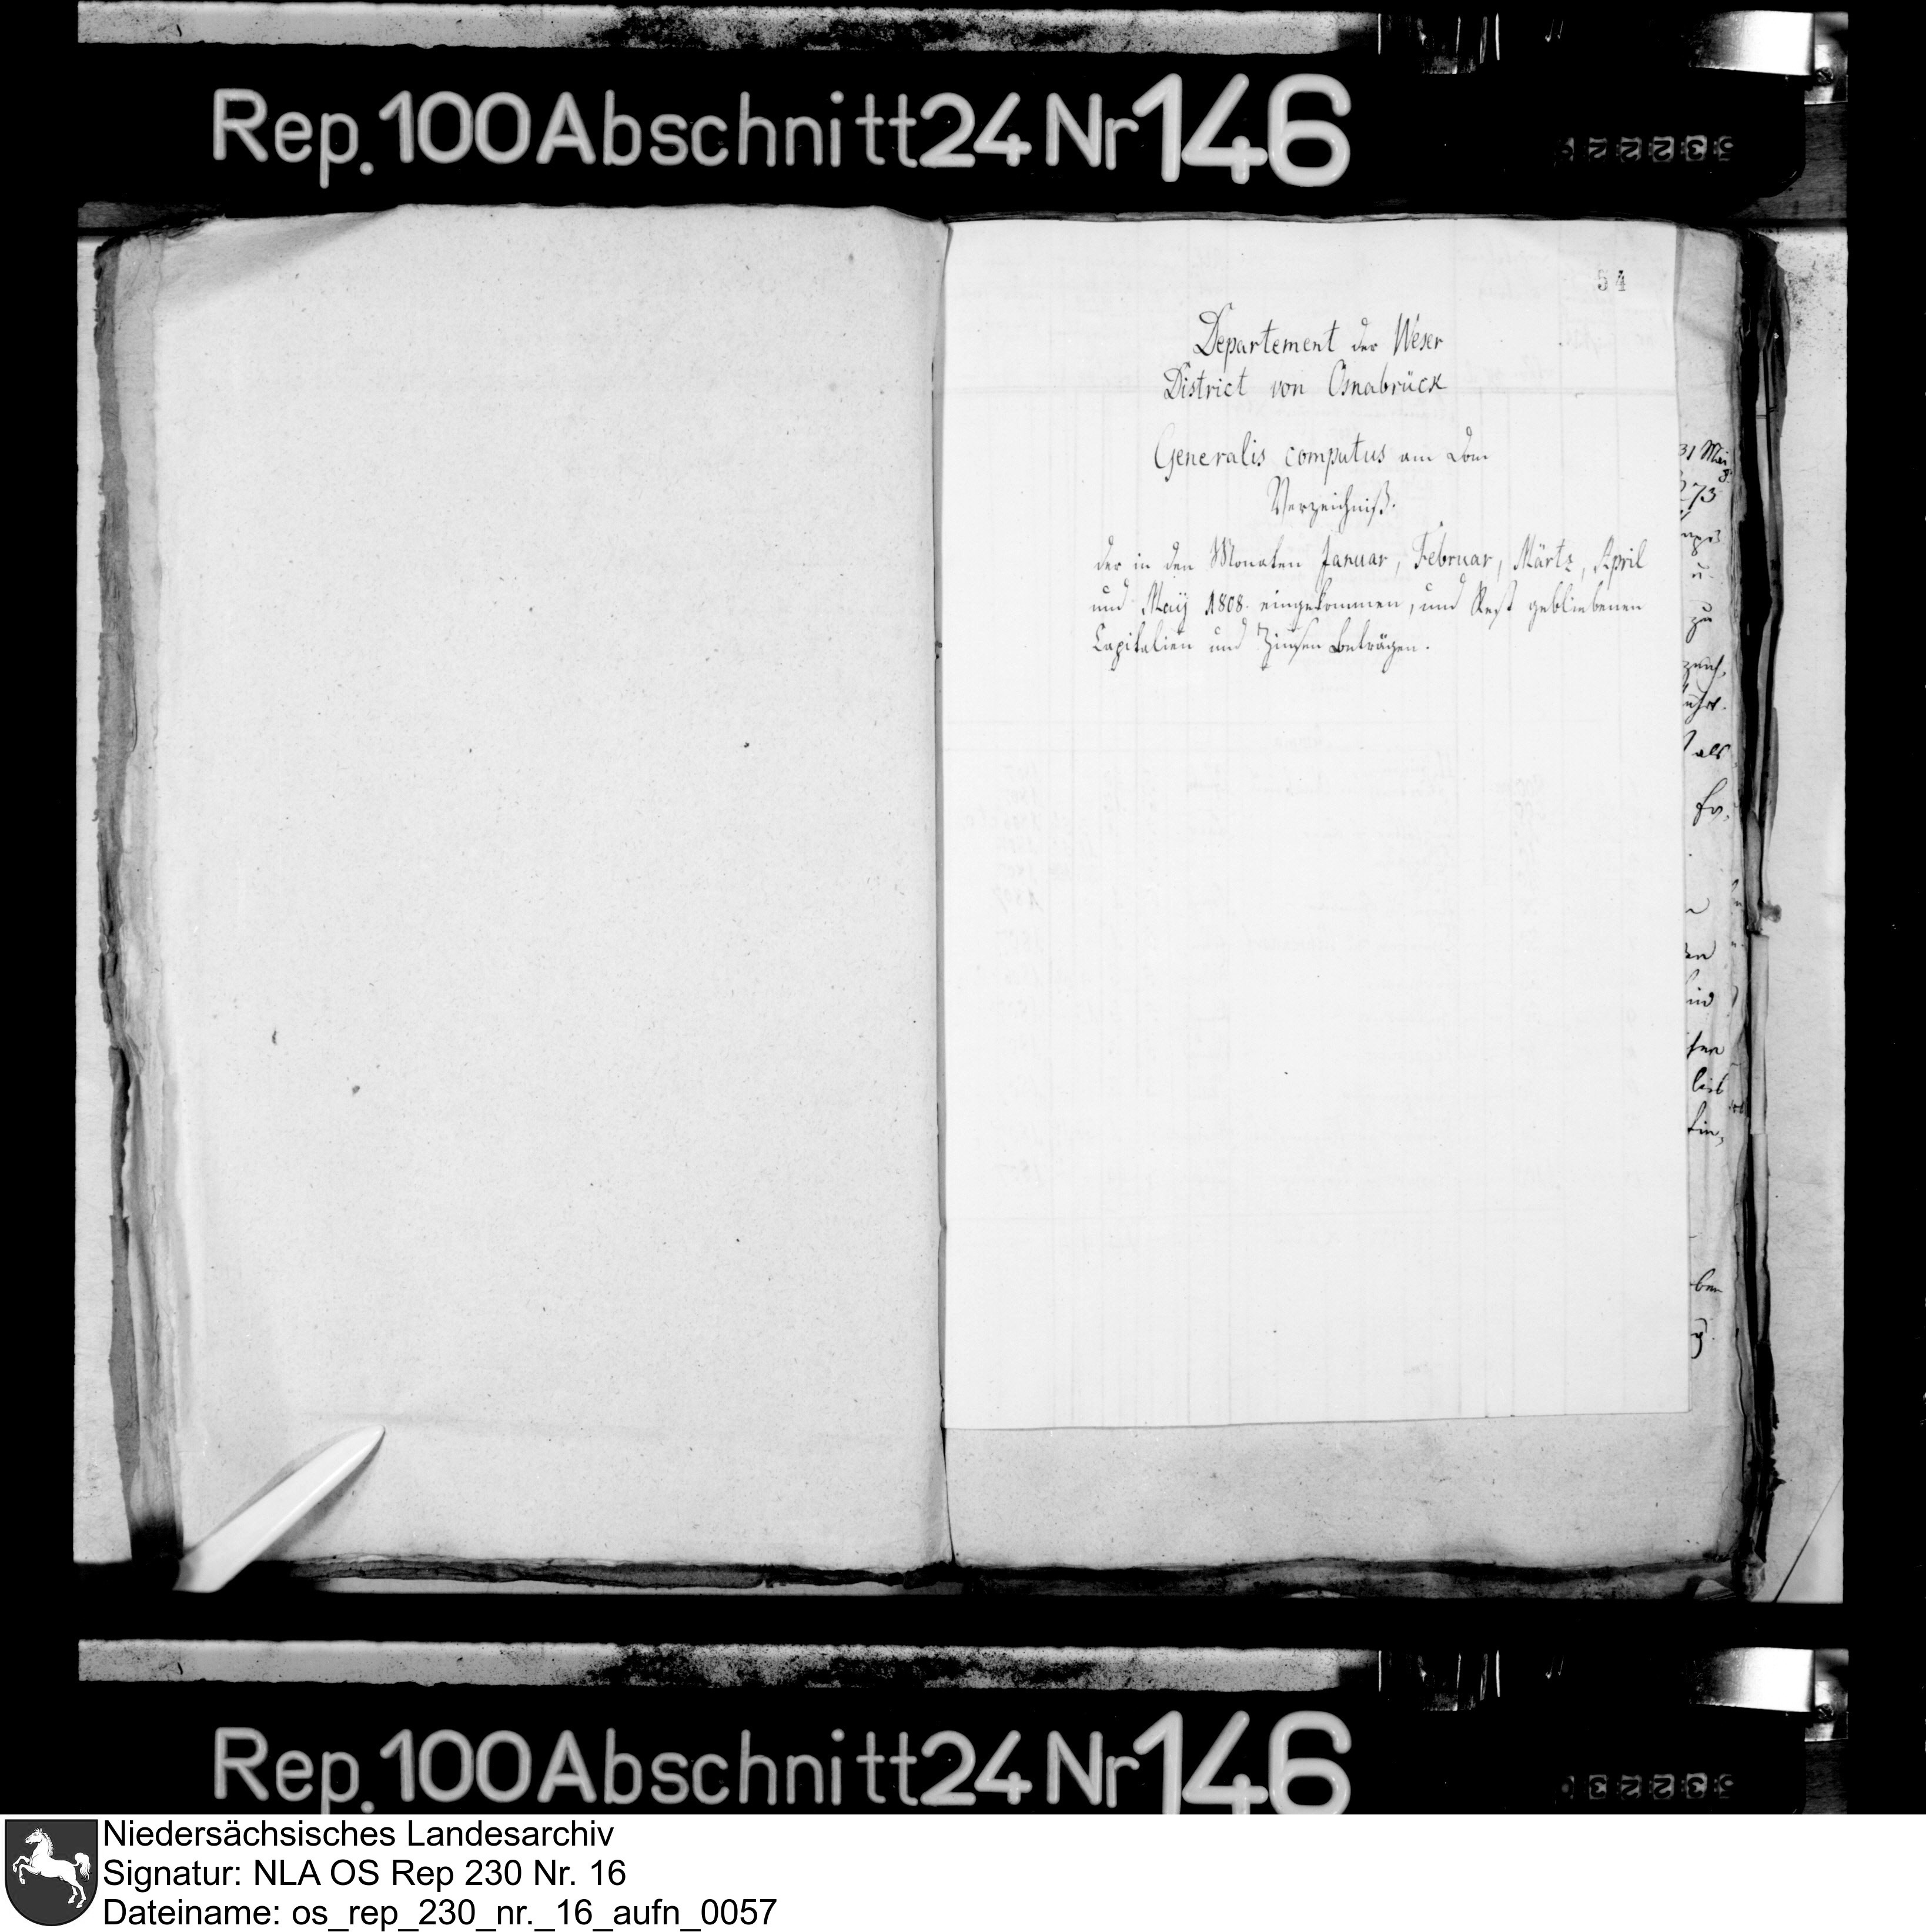 Rep. 100 Abschnitt 24 Nr 146
54
Departement der Weser
District von Osnabrück
Generalis computus am Dom
Verzeichniß.
der in den Monaten Januar, Februar, Märtz, April
und Maÿ 1808. eingekommen, und Rest gebliebenen
Capitalien und Zinsen Beträgen.
31 Mai
273
u
zu
als
Rep. 100 Abschnitt 24 Nr 146
Niedersächsisches Landesarchiv
Signatur: NLA OS Rep 230 Nr. 16
Dateiname: os_rep_230_nr._16_aufn_0057